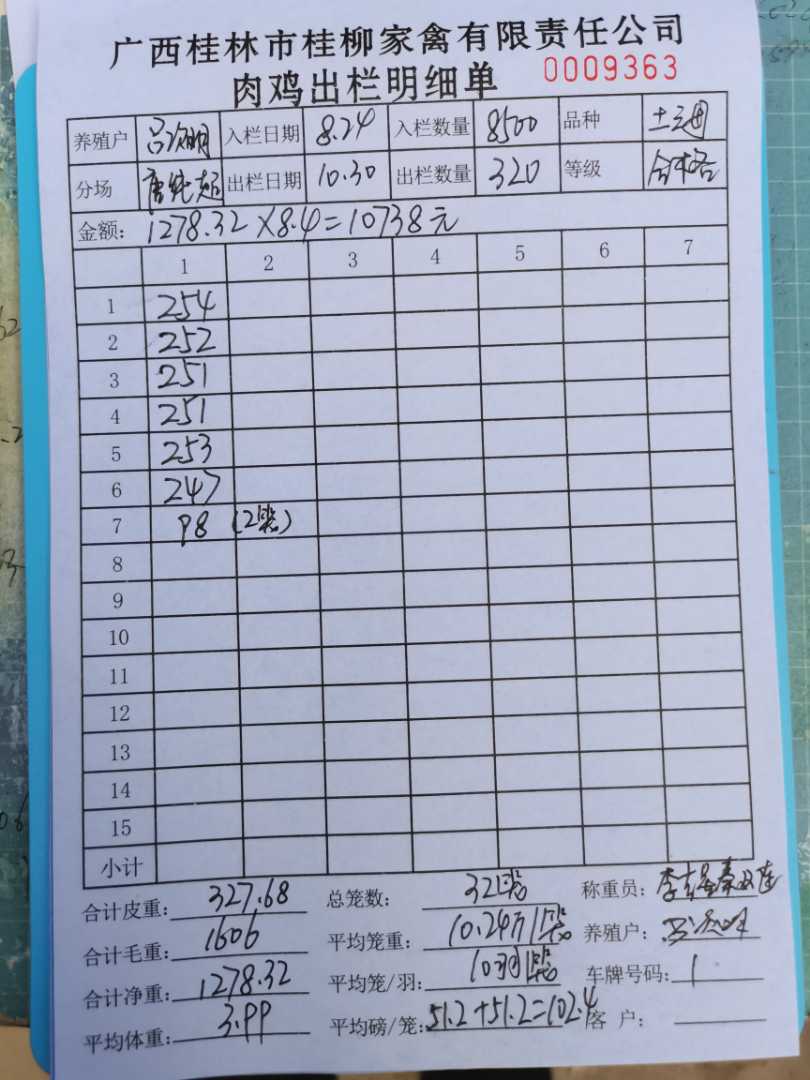 广西桂林市桂柳家禽有限责任公司
肉鸡出栏明细单 0009363
养殖户 吕 入栏日期 8.24 入栏数量 8500 品种 土
分场 唐纯超 出栏日期 10.30 出栏数量 320 等级 合格
金额: 1278.32×8.4=10738元
1 2 3 4 5 6 7
1 254
2 252
3 251
4 251
5 253
6 247
7 98 (2笼)
8
9
10
11
12
13
14
15
小计
合计皮重: 327.68 总笼数: 32笼 称重员: 李
合计毛重: 1606 平均笼重: 10.24斤/笼 养殖户: 吕
合计净重: 1278.32 平均笼/羽: 10羽/笼 车牌号码: 1
平均体重: 3.99 平均磅/笼: 51.2+51.2=102.4 客户: